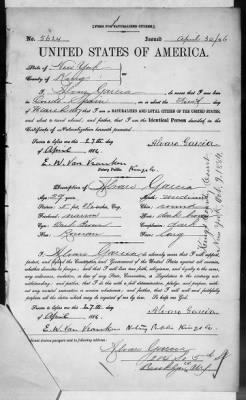 [FORM FOR NATURALIZED CITIZEN.]
No. 5624 Issued April 30/86
UNITED STATES OF AMERICA.
State of New York
County of Kings
I, Alvaro Garcia, do swear that I was born
in Spain, on or about the
day of
that I am a NATURALIZED AND LOYAL CITIZEN OF THE UNITED STATES,
and about to travel abroad, and further, that I am the Identical Person described in the
Certificate of Naturalization herewith presented.
Sworn to before me this 27th day
of April 1886. Alvaro Garcia
E. W. Van Vranken
Notary Public. Kings Co.
Description of Alvaro Garcia
Age: 29 years Mouth: medium
Stature: 5 ft. inches, Eng. Chin: round
Forehead: Hair: dark
Eyes: Dark Brown Complexion: dark
Nose: Roman Face: long
I, Alvaro Garcia, do solemnly swear that I will support,
protect, and defend the Constitution and Government of the United States against all enemies,
whether domestic or foreign; and that I will bear true faith, allegiance, and loyalty to the same,
any ordinance, resolution, or law of any State, Convention, or Legislature to the contrary not-
withstanding; and further, that I do this with a full determination, pledge, and purpose, with-
out any mental reservation or evasion whatsoever; and further, that I will well and faithfully
perform all the duties which may be required of me by law. So help me God.
Sworn to before me this 27th day
of April 1886. Alvaro Garcia
E. W. Van Vranken Notary Public Kings Co.
Send passport to the following address:
Alvaro Garcia